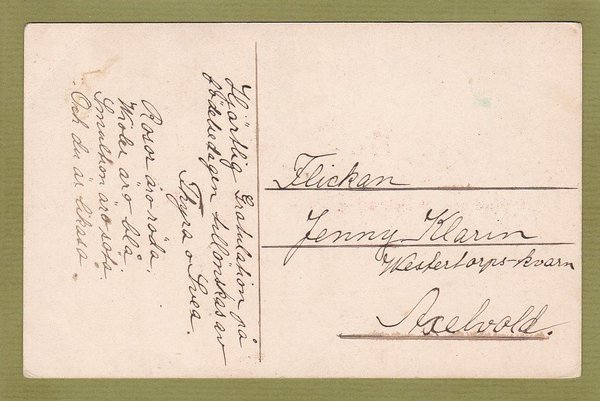 Hjärtlig Gratulation på
födelsedagen tillönskas av
Thyra o Svea.
Rosor äro röda,
Violer äro blå
Smultron äro söta
Och du är likaså.
Flickan
Jenny Klarin
Westertorps-kvarn
Axelvold.